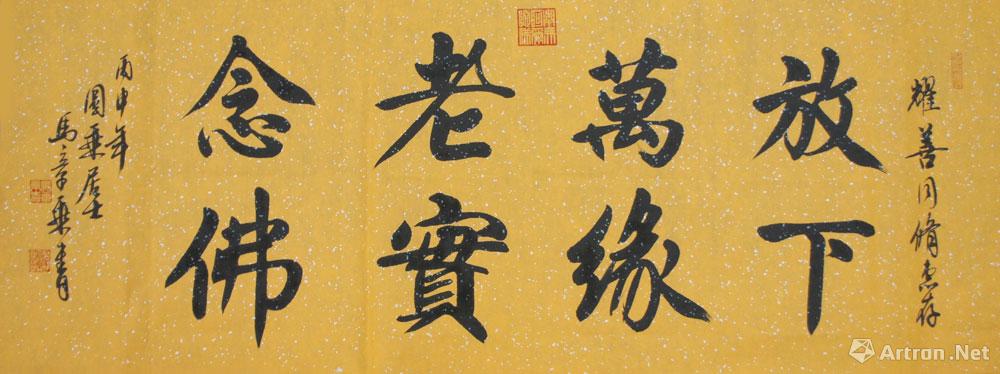 耀善同脩惠存
放下
萬緣
老實
念佛
丙申年
圓乘居士
馬章乘書
Artron.Net